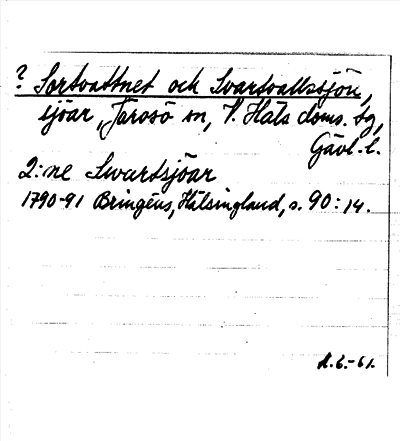 ? Sortvattnet och Svartvallssjön,
sjöar, Järvsö sn, V. Häls doms. sg,
Gävl. l.
2:ne Swartsjöar
1790-91 Bringéus, Hälsingland, s. 90:14.
A.6.-61.